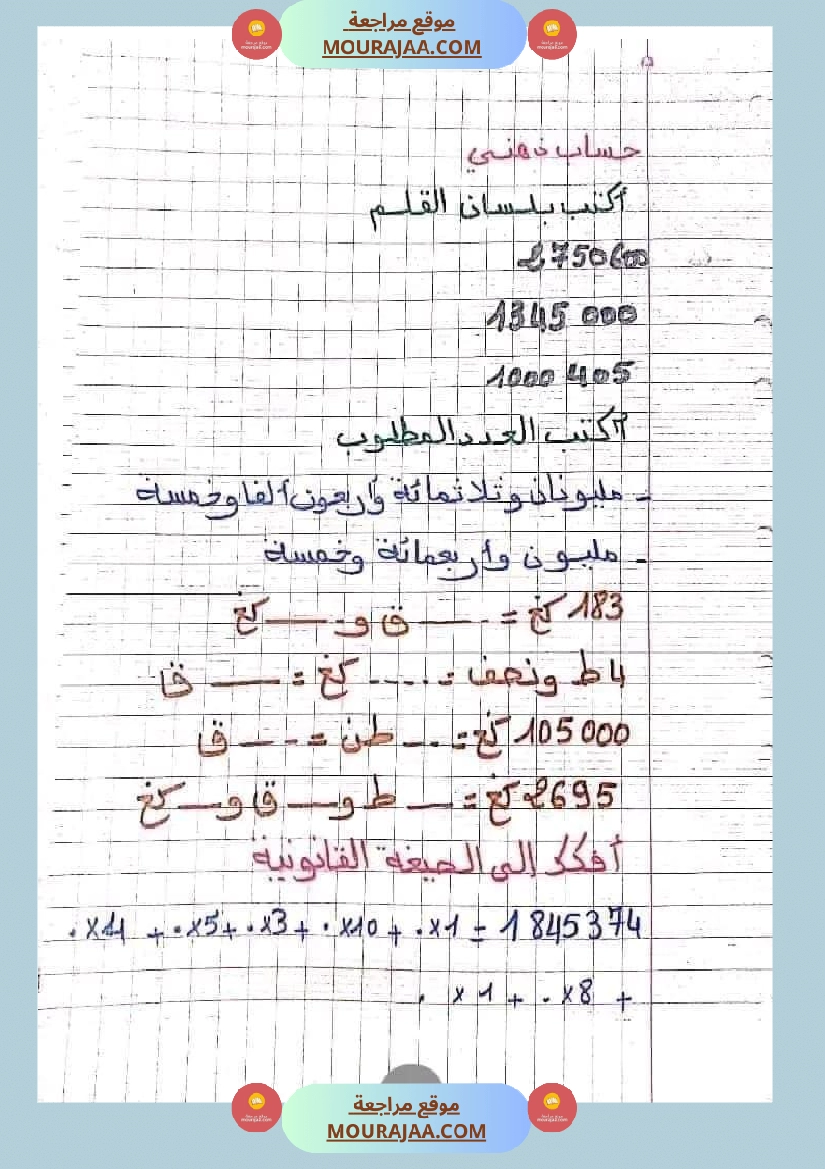 موقع مراجعة
MOURAJAA.COM
حساب ذهني
أكتب بلسان القلم
2750600
1345 000
1000 405
أكتب العدد المطلوب
- مليونان وثلاثمائة وأربعون ألفا وخمسة
- مليون وأربعمائة وخمسة
183 كغ = ---- ق و ---- كغ
4 ط ونصف = ---- كغ = ---- ق
105 000 كغ = --- طن = --- ق
2695 كغ = --- ط و --- ق و --- كغ
أفكك إلى الصيغة القانونية
1 845 374 = 1×. + 10×. + 3×. + 5×. + 4×.
+ 8×. + 1×.
موقع مراجعة
MOURAJAA.COM